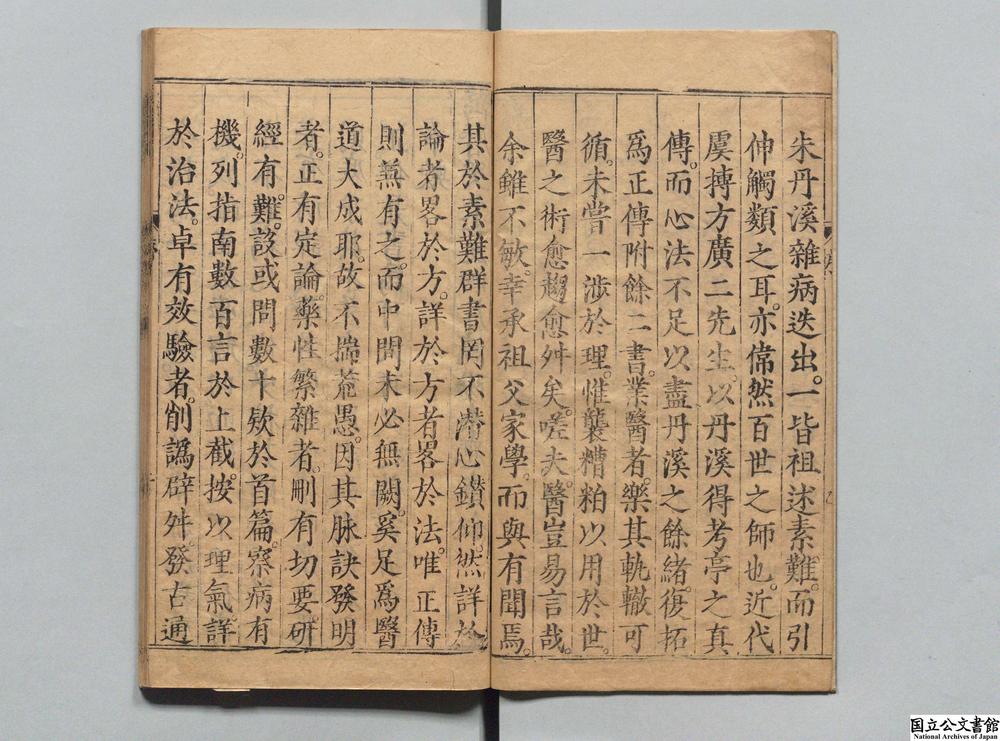 朱丹溪雜病迭出。一皆祖述素難。而引
伸觸類之耳。亦儒然百世之師也。近代
虞摶方廣二先生。以丹溪得考亭之真
傳。而心法不足以盡丹溪之餘緒。復拓
爲正傳附餘二書。業醫者。樂其軌轍可
循。未嘗一涉於理。惟襲糟粕以用於世。
醫之術愈趨愈舛矣。嗟夫。醫豈易言哉。
余雖不敏。幸承祖父家學。而與有聞焉。
其於素難群書罔不潛心鑚仰。然詳於
論者畧於方。詳於方者畧於法。唯正傳
則無有之。而中間未必無闕。奚足爲醫
道大成耶。故不揣荒愚。因其脉訣發明
者。正有定論。藥性繁雜者。刪有切要。研
經有難。該或問數十欵於首篇。察病有
機。列指南數百言於上截。按以理氣詳
於治法。卓有效驗者。削譌辟舛。發古通
国立公文書館
National Archives of Japan